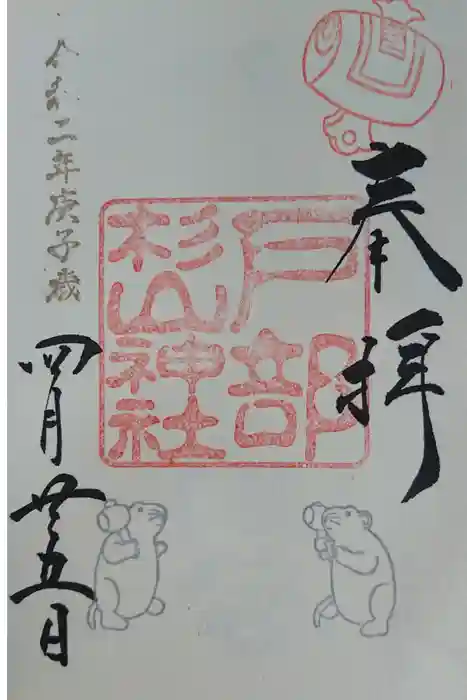 奉拝
戸部
杉山
神社
令和二年庚子歳
四月廿五日